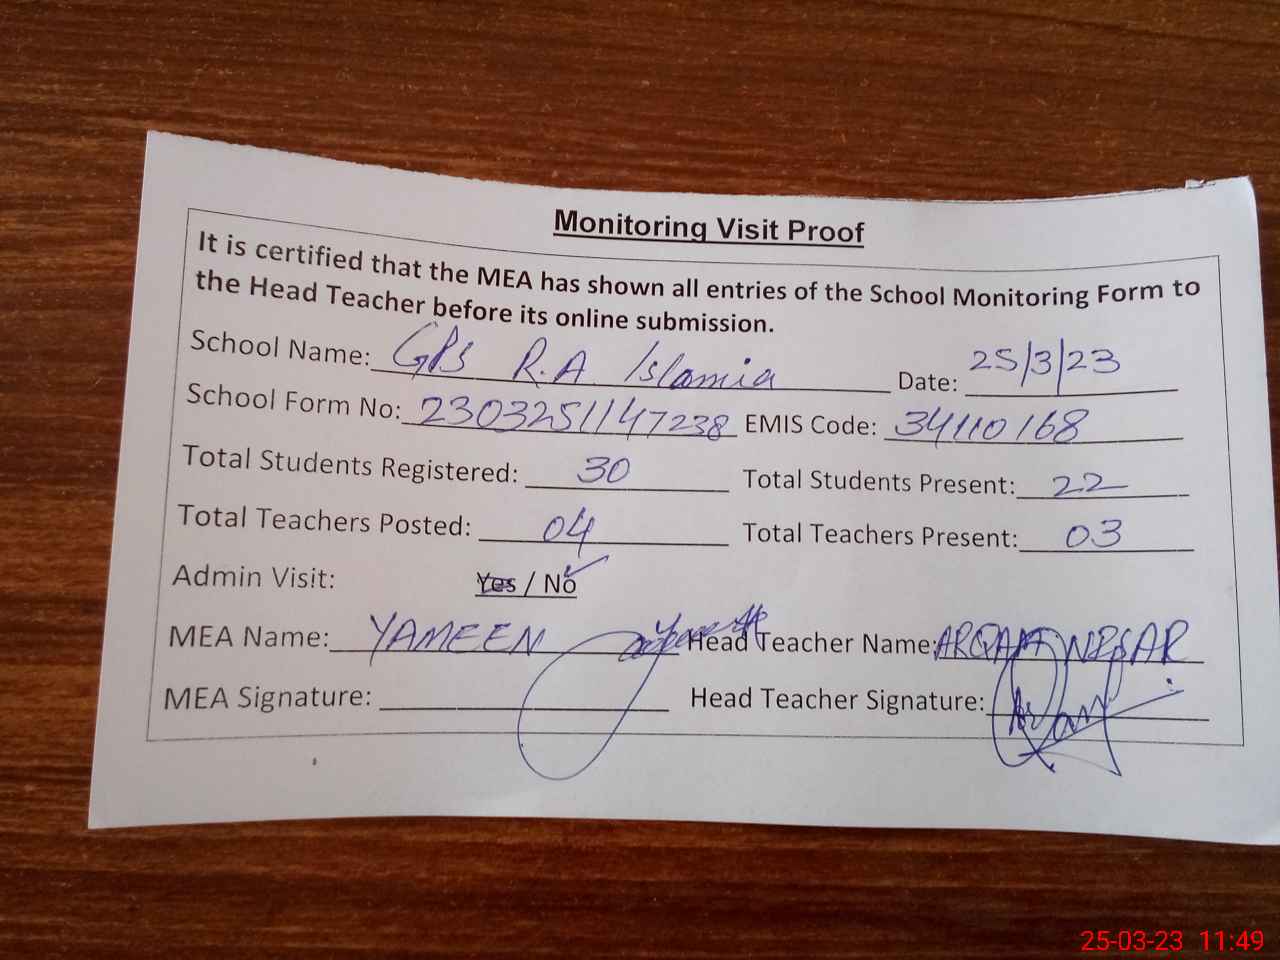 Monitoring Visit Proof
It is certified that the MEA has shown all entries of the School Monitoring Form to
the Head Teacher before its online submission.
School Name: GPS R.A Islamia Date: 25/3/23
School Form No: 2303251147238 EMIS Code: 34110168
Total Students Registered: 30 Total Students Present: 22
Total Teachers Posted: 04 Total Teachers Present: 03
Admin Visit: Yes / No
MEA Name: YAMEEN Head Teacher Name: ARQAM
MEA Signature: Head Teacher Signature:
25-03-23 11:49